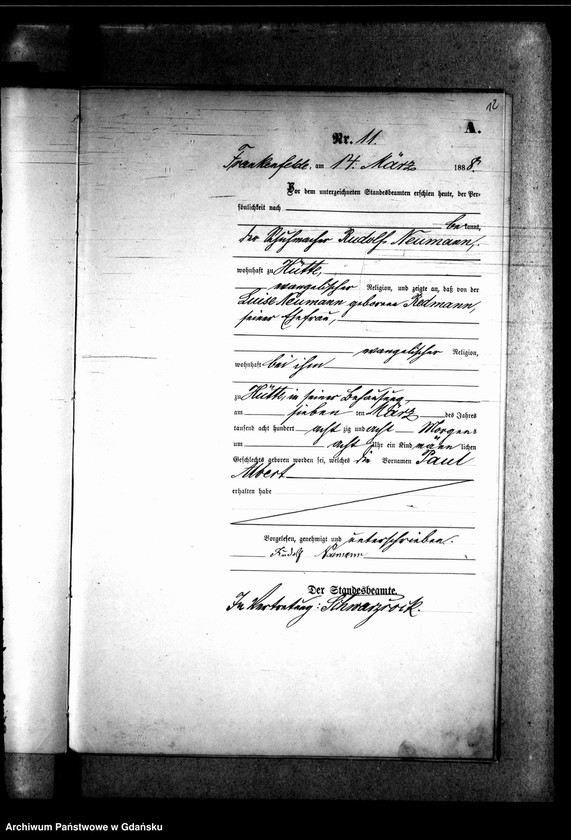 12
A.
Nr. 11.
Frankenfelde, am 14. März 1888.
Vor dem unterzeichneten Standesbeamten erschien heute, der Per-
sönlichkeit nach
be kannt,
der Schuhmacher Rudolf Neumann,
wohnhaft zu Hütte,
evangelischer Religion, und zeigte an, daß von der
Luise Neumann geborenen Redmann,
seiner Ehefrau,
evangelischer Religion,
wohnhaft bei ihm
zu Hütte, in seiner Behausung,
am sieben ten März des Jahres
tausend acht hundert acht zig und acht Morgens
um acht Uhr ein Kind männ lichen
Geschlechts geboren worden sei, welches die Vornamen Paul
Albert
erhalten habe
Vorgelesen, genehmigt und unterschrieben.
Rudolf Neumann
Der Standesbeamte.
In Vertretung: Schwarzrock.
Archiwum Państwowe w Gdańsku